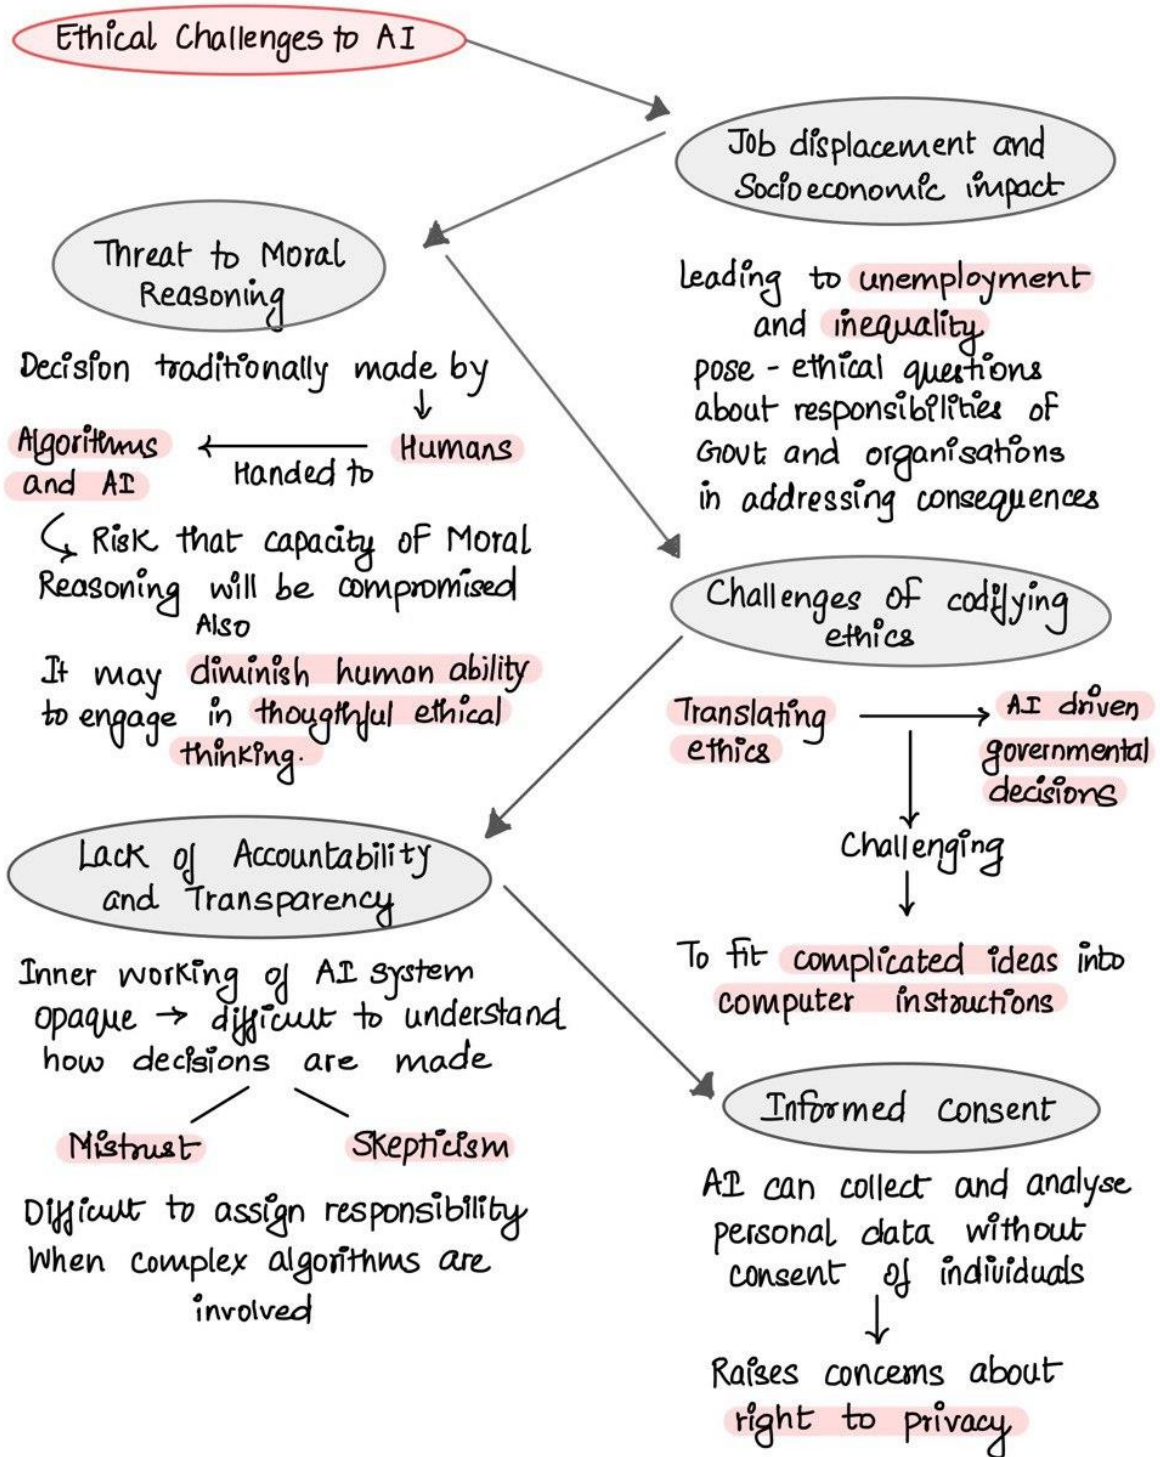 Ethical Challenges to AI
Job displacement and
Socioeconomic impact
leading to unemployment
and inequality
pose - ethical questions
about responsibilities of
Govt. and organisations
in addressing consequences
Threat to Moral
Reasoning
Decision traditionally made by
Humans
Handed to
Algorithms
and AI
Risk that capacity of Moral
Reasoning will be compromised
Also
It may diminish human ability
to engage in thougthful ethical
thinking.
Challenges of codifying
ethics
Translating
ethics
AI driven
governmental
decisions
Challenging
To fit complicated ideas into
computer instructions
Lack of Accountability
and Transparency
Inner working of AI system
opaque → difficult to understand
how decisions are made
Mistrust
Skepticism
Difficult to assign responsibility
When complex algorithms are
involved
Informed consent
AI can collect and analyse
personal data without
consent of individuals
Raises concerns about
right to privacy